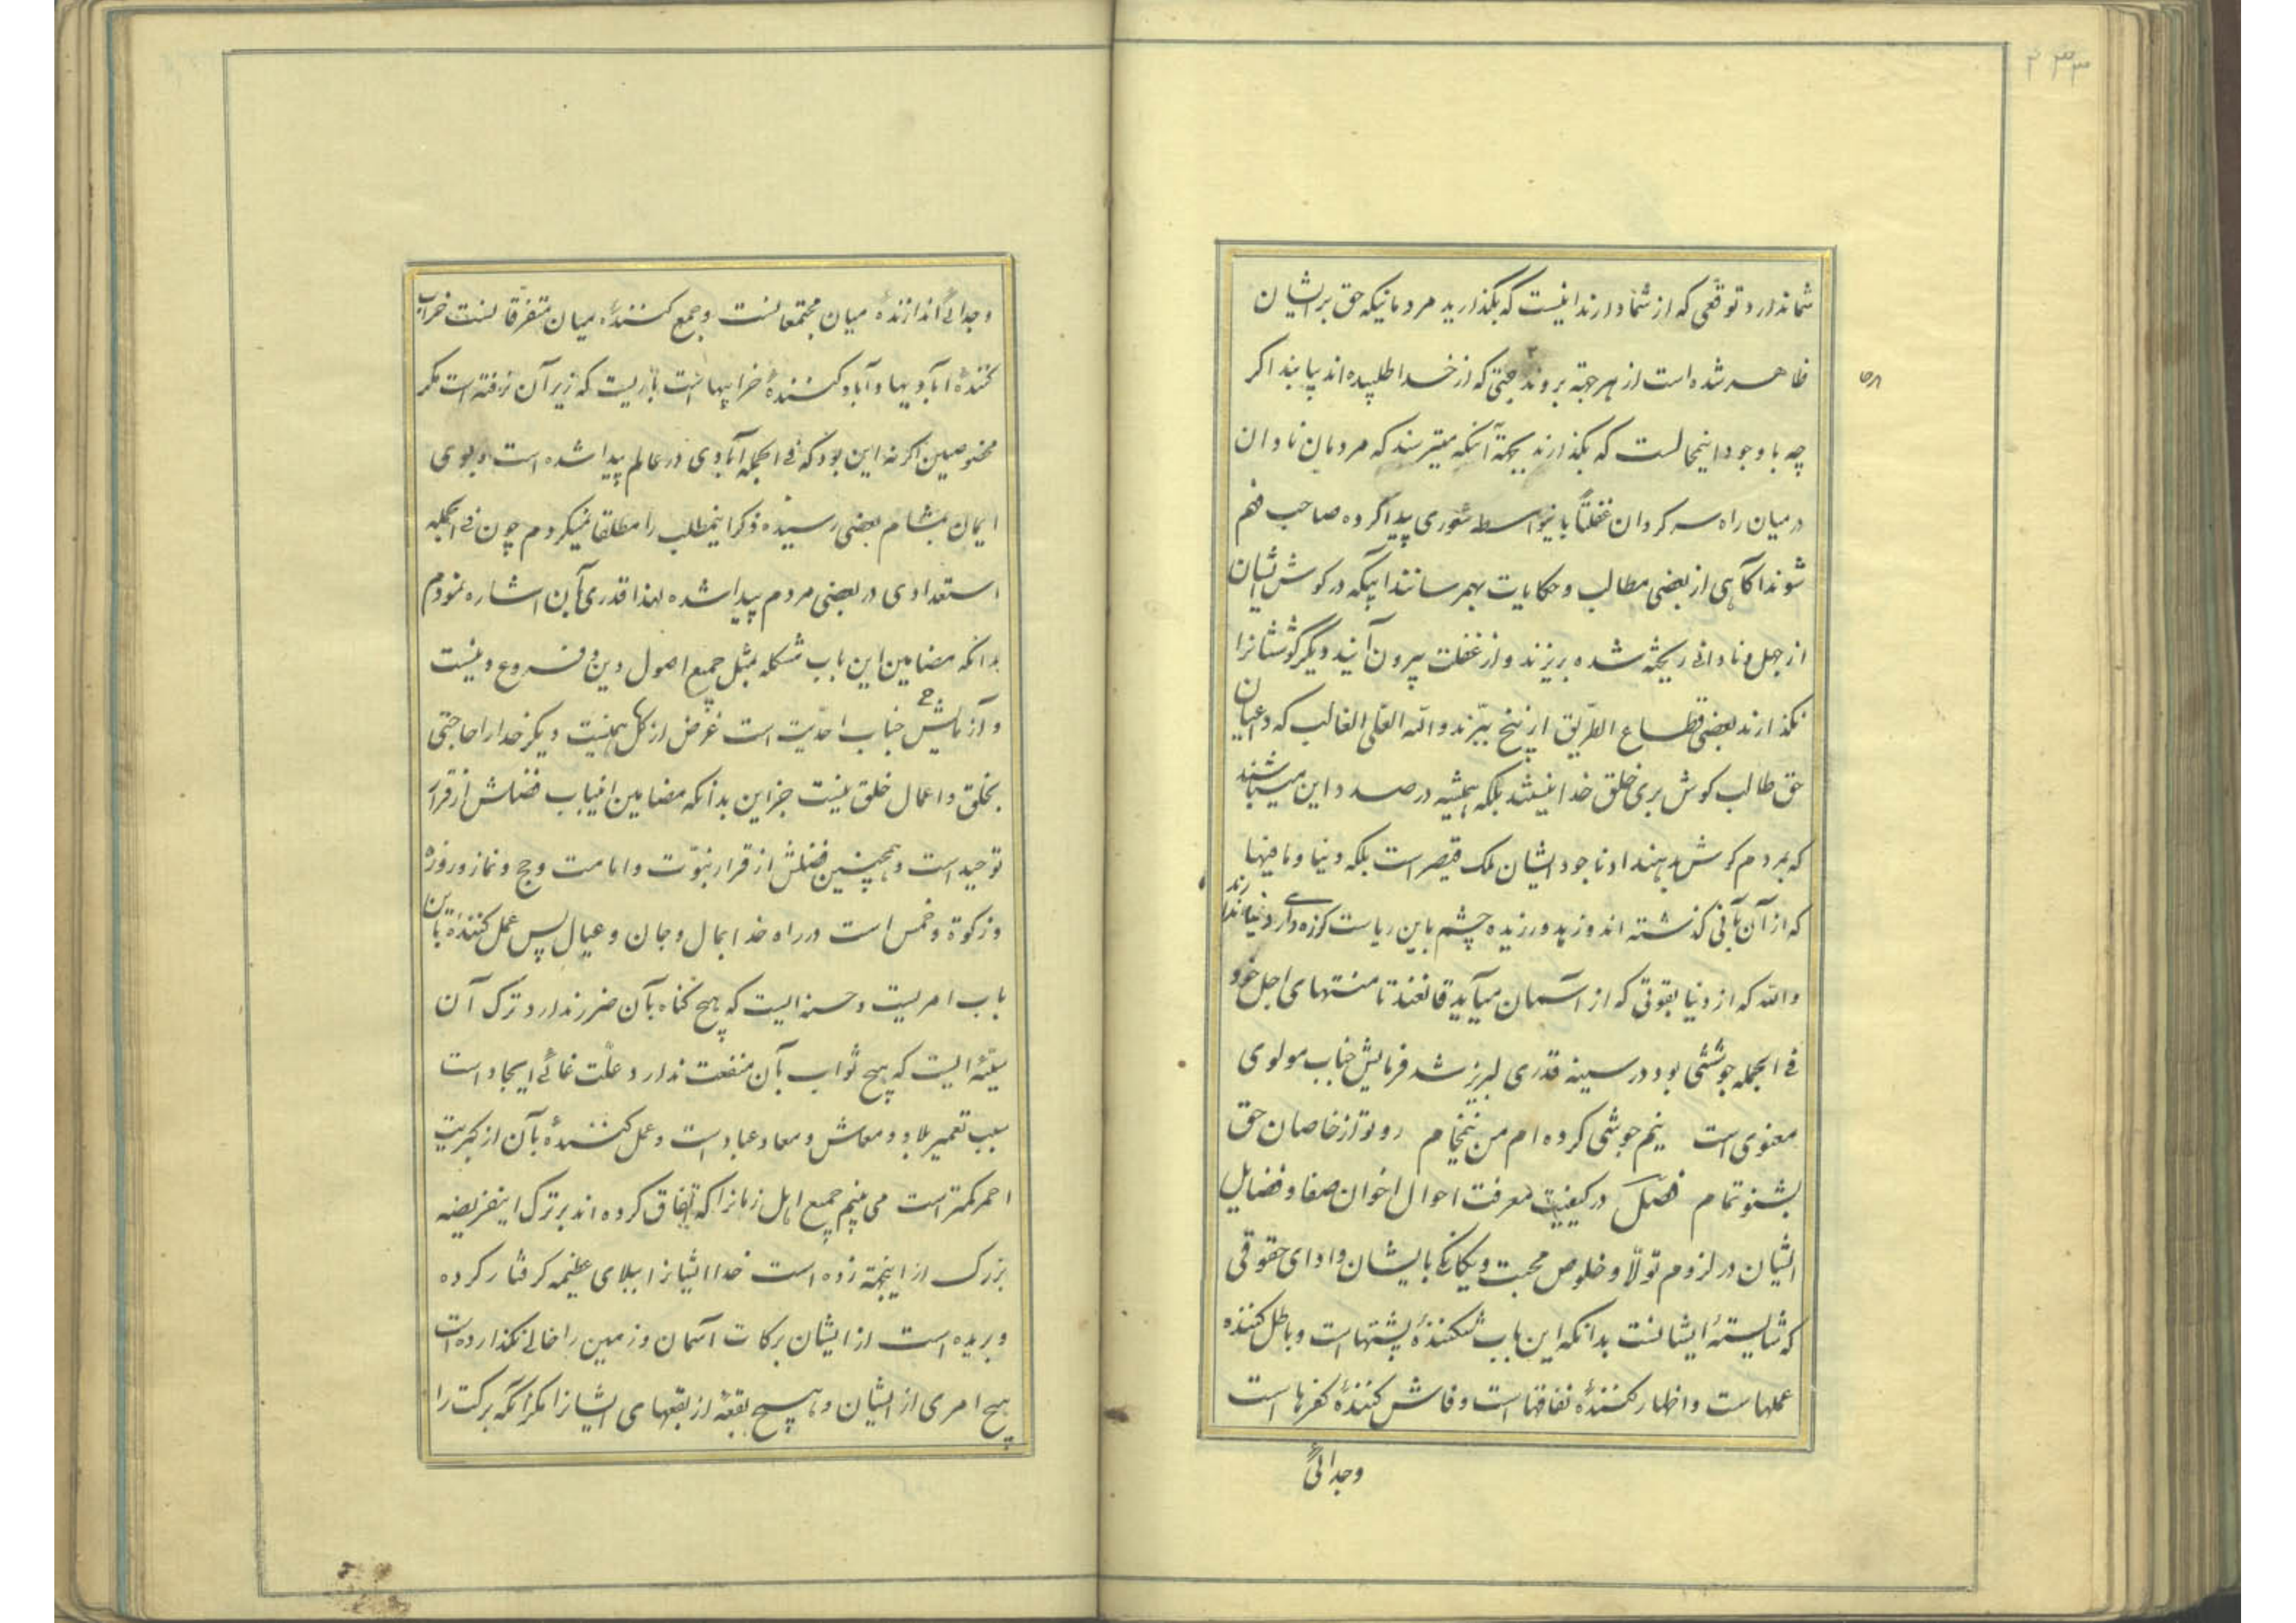 ۴۳۳
شما ندارد توقّعی که از شما دارند اینست که بگذارید مردمانیکه حق بر ایشان
ظاهر شده است از هر جهة بروند جنتی که از خدا طلبیده‌اند بیابند اگر
چه با وجود اینحالست که بگذارند بجهة آنکه میترسند که مردمان نادان
در میان راه سر کردان غفلتاً شوری پیدا کرده صاحب فهم
شوند آکاهی از بعضی مطالب و حکایات بهمرسانند اپیکه در کوش ایشان
از جهل و نادانی ریخته شده بریزند و از غفلت بیرون آیند دیگر گوششانرا
نکذارند بعضی قطاع الطریق از بیخ ببرند والله العلی الغالب که داعیان
حق طالب کوش بری خلق خدا نیستند بلکه همیشه در صدد این میباشند
که بمردم کوش بدهند ادنا جود ایشان ملک قیصر است بلکه دنیا و مافیها
که از آن بآنی کذشته‌اند و زهد ورزیده چشم باین ریاست دنیا ندارند
والله که از دنیا بقوتی که از آسمان میآید قانعند تا منتهای اجل خود
فی الجمله جوششی بود در سینه قدری لبریز شد فرمایش جناب مولوی
معنوی است نیم جوشی کرده‌ام من نیمخام رو تو از خاصان حق
بشنو تمام فصل در کیفیت معرفت احوال اخوان صفا و فضایل
ایشان در لزوم تولّا و خلوص محبت و یکانکی با ایشان و ادای حقوقی
که شایستهٔ ایشانست بدانکه این باب شکنندهٔ پشتهاست و باطل کننده
عملهاست و اظهار کنندهٔ نفاقها است و فاش کنندهٔ کفرها است
وجدائی
وجدائی اندازنده میان مجتمعانست و جمع کنندهٔ میان متفرقانست خراب
کنندهٔ آبادیها و آباد کنندهٔ خرابیهاست باریست که زیر آن نرفته است مکر
مخصوصین اکر نه این بود که فی الجمله آبادی در عالم پیدا شده است و بوی
ایمان بمشام بعضی رسیده ذکر اینمطلب را مطلقا نمیکردم چون فی الجمله
استعدادی در بعضی مردم پیدا شده لهذا قدری بآن اشاره نمودم
بدانکه مضامین این باب مشکله بمثل جمیع اصول دین و فروع دینست
و آزمایش جناب احدیّت است غرض از کل همینست دیکر خدا را حاجتی
بخلق و اعمال خلق نیست جز این بدانکه مضامین اینباب فضلش از قرار
توحید است و همچنین فضلش از قرار نبوّت و امامت و حج و نماز و روزه
و زکوة و خمس است در راه خدا بمال و جان و عیال پس عمل کنندهٔ باین
باب امریست و حسنه ایست که هیچ کناه بآن ضرر ندارد و ترک آن
سیّئه ایست که هیچ ثواب بآن منفعت ندارد و علّت غائی ایجاد است
سبب تعمیر بلاد و معاش و معاد عباد است و عمل کنندهٔ بآن از کبریت
احمر کمتر است می بینم جمیع اهل زمانرا که اتفاق کرده‌اند بر ترک اینفریضه
بزرک از اینجهة زده است خدا ایشانرا ببلای عظیمه کرفتار کرده
و بریده است از ایشان برکات آسمان و زمین را خالی نکذارده است
هیچ امری از ایشان و هیچ بقعه از بقعهای ایشانرا مکر آنکه برکت را